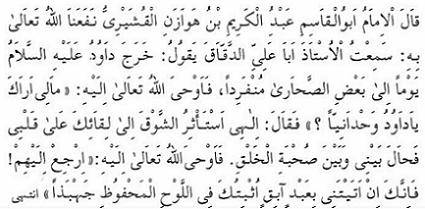 قَالَ الْاِمَامُ اَبُوالْقَاسِمِ عَبْدُ الْكَرِيمِ بْنُ هَوَازِنَ الْقُشَيْرِىُّ نَفَعَنَا اللهُ تَعَالٰى
بِهِ: سَمِعْتُ الْاُسْتَاذَ اَبَا عَلِىٍّ الدَّقَّاقَ يَقُولُ: خَرَجَ دَاوُدُ عَلَيْهِ السَّلَامُ
يَوْمًا اِلٰى بَعْضِ الصَّحَارٰى مُنْفَرِدًا، فَاَوْحَى اللهُ تَعَالٰى اِلَيْهِ: «مَالِى اَرَاكَ
يَادَاوُدُ وَحْدَانِيًّا ؟» فَقَالَ: اِلٰهِى اسْتَأْثَرَ الشَّوْقُ اِلٰى لِقَائِكَ عَلٰى قَلْبِى
فَحَالَ بَيْنِى وَبَيْنَ صُحْبَةِ الْخَلْقِ. فَاَوْحَى اللهُ تَعَالٰى اِلَيْهِ: «اِرْجِعْ اِلَيْهِمْ!
فَاِنَّكَ اِنْ اَتَيْتَنِى بِعَبْدٍ آبِقٍ اُثْبِتُكَ فِى اللَّوْحِ الْمَحْفُوظِ جِهْبِذًا» انتهى